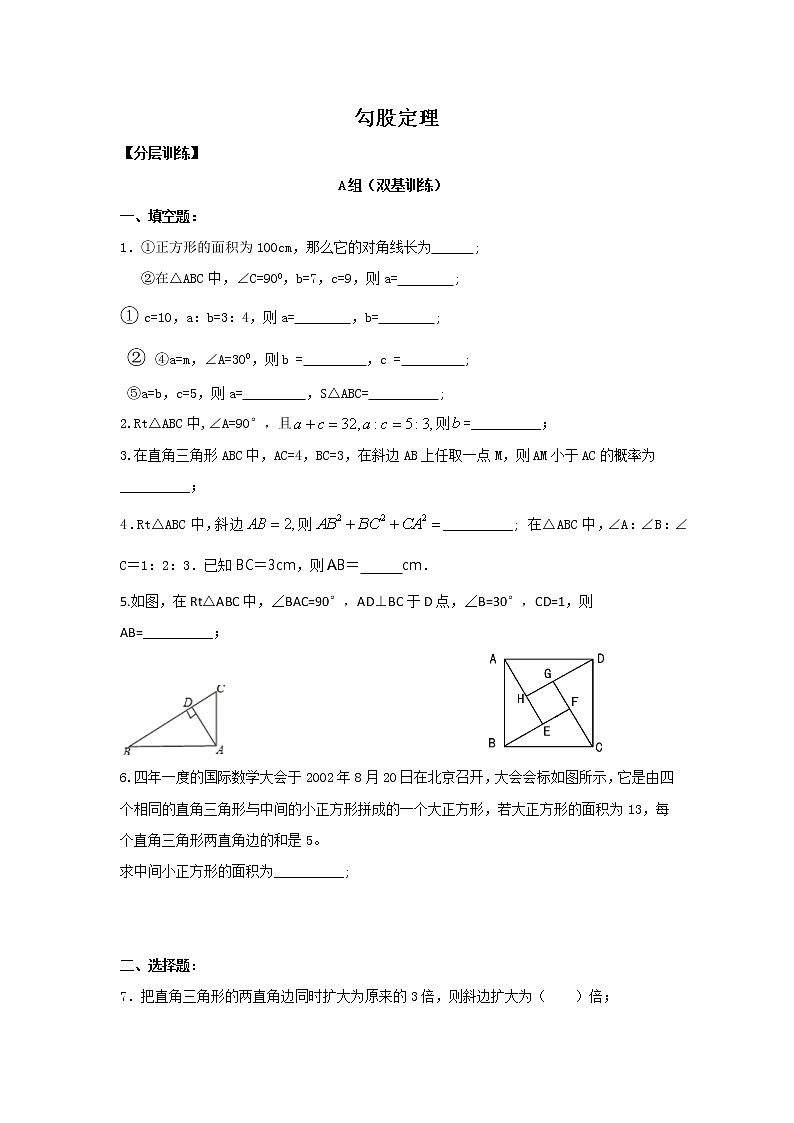 勾股定理
【分层训练】
A组（双基训练）
一、填空题：
1．①正方形的面积为100cm，那么它的对角线长为______；
②在△ABC中，∠C=90⁰，b=7，c=9，则a=________；
① c=10，a：b=3：4，则a=________，b=________；
② ④a=m，∠A=30⁰，则b =_________，c =_________；
⑤a=b，c=5，则a=_________，S△ABC=__________；
2.Rt△ABC中,∠A=90°，且a+c=32,a:c=5:3,则b=__________；
3.在直角三角形ABC中，AC=4，BC=3，在斜边AB上任取一点M，则AM小于AC的概率为
__________；
4.Rt△ABC中,斜边AB=2,则AB²+BC²+CA²=__________； 在△ABC中,∠A:∠B:∠
C＝1：2：3．已知BC＝3cm，则AB＝______cm．
5.如图，在Rt△ABC中，∠BAC=90°，AD⊥BC于D点，∠B=30°，CD=1，则
AB=__________；
A D
G
C
D H F
E
B A B C
6.四年一度的国际数学大会于2002年8月20日在北京召开,大会会标如图所示,它是由四
个相同的直角三角形与中间的小正方形拼成的一个大正方形，若大正方形的面积为13，每
个直角三角形两直角边的和是5。
求中间小正方形的面积为__________；
二、选择题：
7．把直角三角形的两直角边同时扩大为原来的3倍，则斜边扩大为（　　）倍；